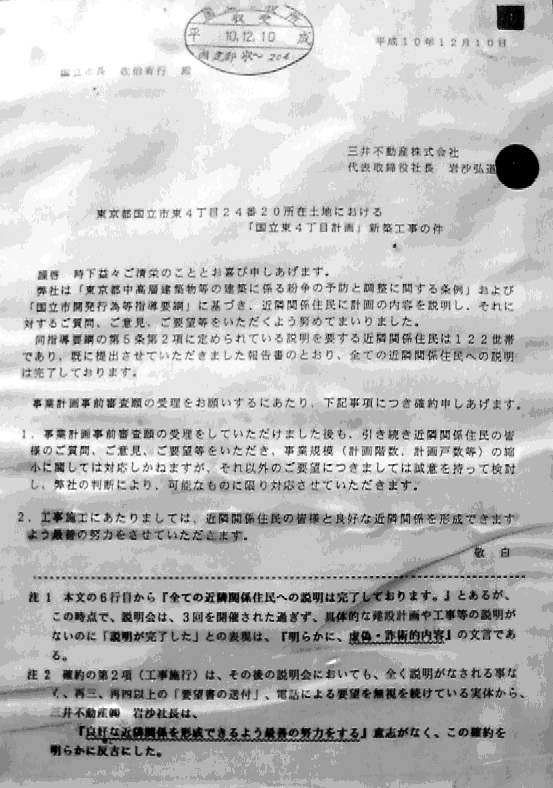 平 10.12.10 成
平成10年12月10日
国立市長 佐伯有行 殿
三井不動産株式会社
代表取締役社長 岩沙弘道
東京都国立市東4丁目24番20所在土地における
「国立東4丁目計画」新築工事の件
謹啓 時下益々ご清栄のこととお喜び申しあげます。
弊社は「東京都中高層建築物等の建築に係る紛争の予防と調整に関する条例」および
「国立市開発行為等指導要綱」に基づき、近隣関係住民に計画の内容を説明し、それに
対するご質問、ご意見、ご要望等をいただくよう努めてまいりました。
同指導要綱の第5条第2項に定められている説明を要する近隣関係住民は122世帯
であり、既に提出させていただきました報告書のとおり、全ての近隣関係住民への説明
は完了しております。
事業計画事前審査願の受理をお願いするにあたり、下記事項につき確約申しあげます。
1．事業計画事前審査願の受理をしていただけました後も、引き続き近隣関係住民の皆
様のご質問、ご意見、ご要望等をいただき、事業規模（計画階数、計画戸数等）の縮
小に関しては対応しかねますが、それ以外のご要望につきましては誠意を持って検討
し、弊社の判断により、可能なものに限り対応させていただきます。
2．工事施工にあたりましては、近隣関係住民の皆様と良好な近隣関係を形成できます
よう最善の努力をさせていただきます。
敬 白
注 1 本文の6行目から『全ての近隣関係住民への説明は完了しております。』とあるが、
この時点で、説明会は、3回を開催された過ぎず、具体的な建設計画や工事等の説明が
ないのに「説明が完了した」との表現は、『明らかに、虚偽・詐術的内容』の文言であ
る。
注 2 確約の第2項（工事施行）は、その後の説明会においても、全く説明がなされる事な
く、再三、再四以上の「要望書の送付」、電話による要望を無視を続けている実体から、
三井不動産㈱ 岩沙社長は、
『良好な近隣関係を形成できるよう最善の努力をする』意志がなく、この確約を
明らかに反古にした。